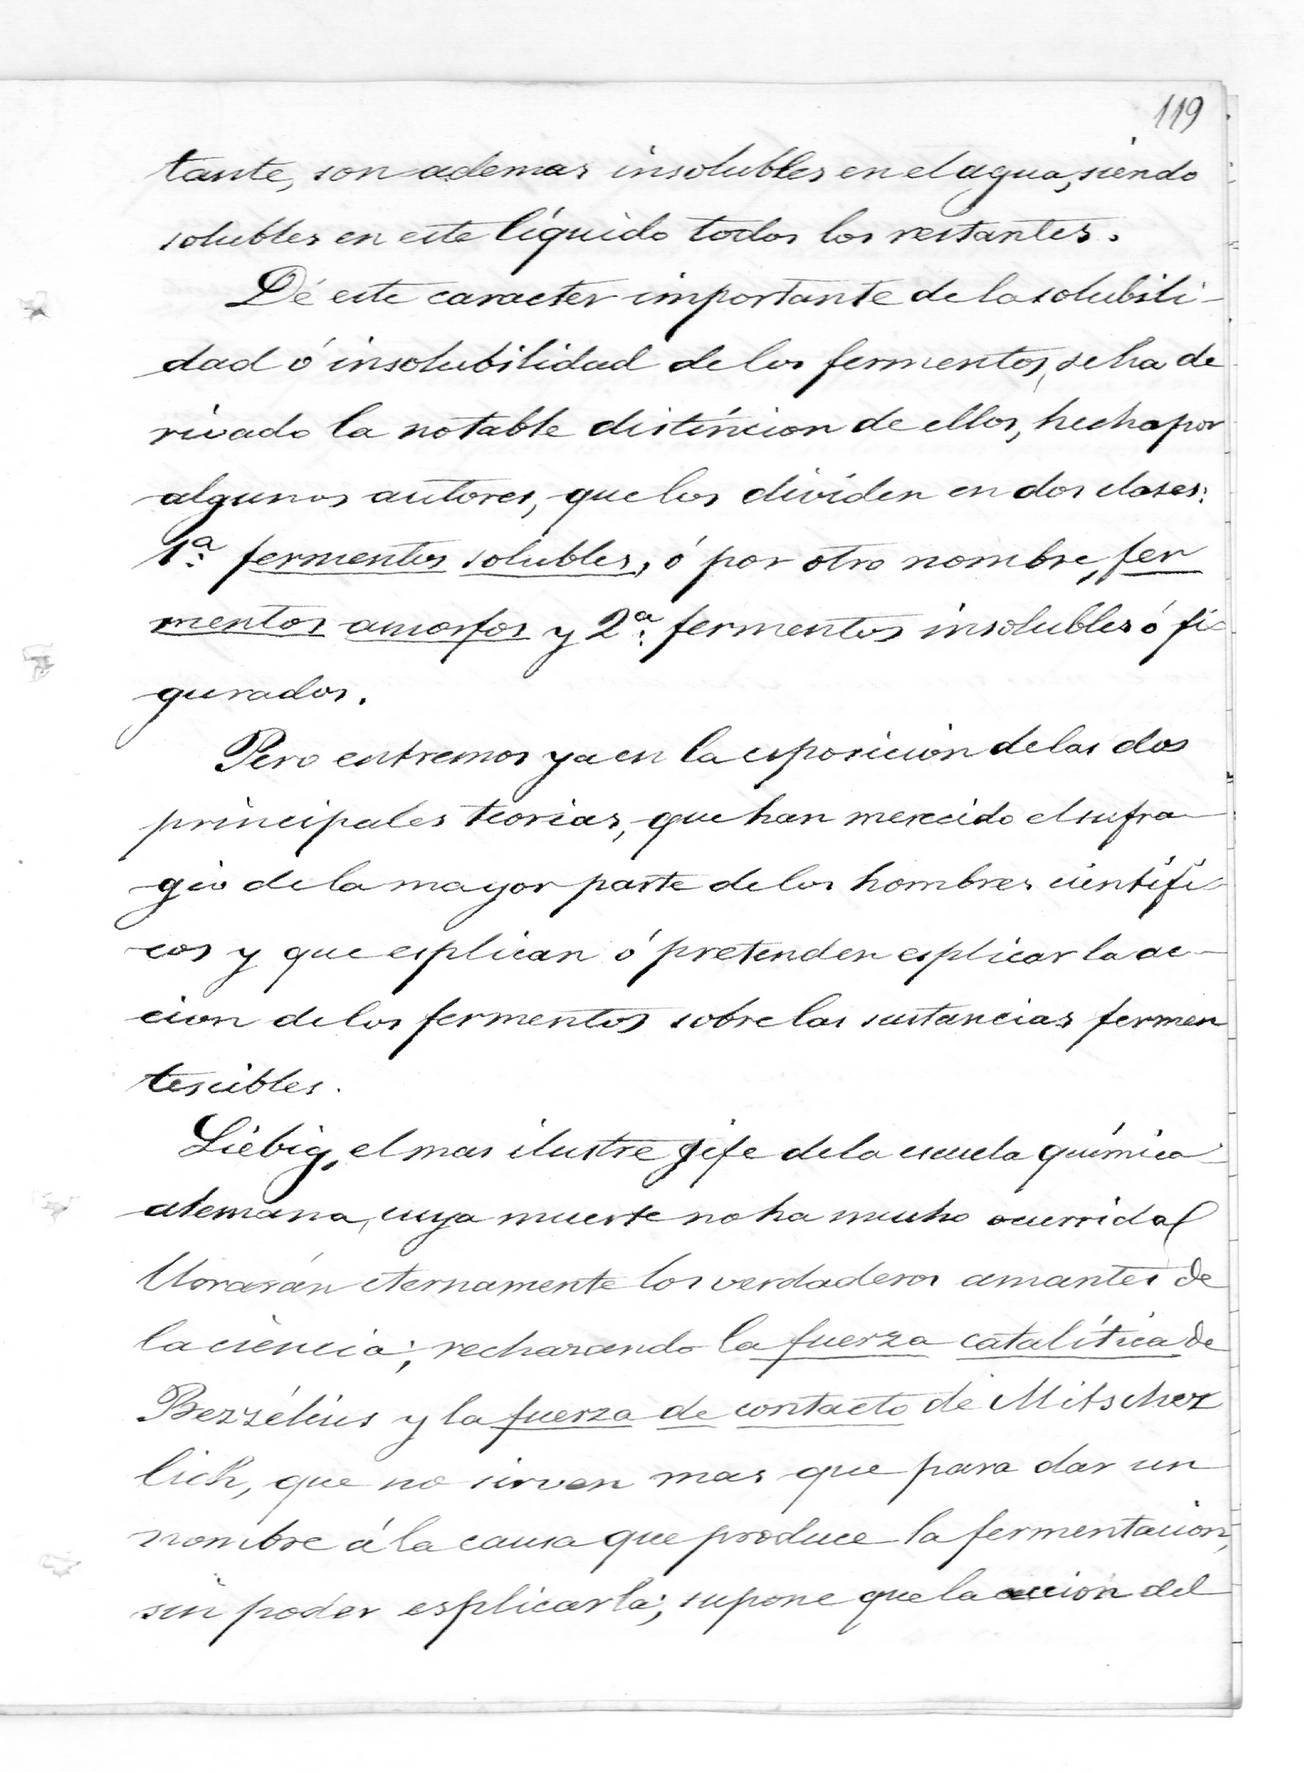 119
tante, son ademas insolubles en el agua, siendo
solubles en este líquido todos los restantes.
De este caracter importante de la solubili-
dad ó insolubilidad de los fermentos, se ha de
rivado la notable distincion de ellos, hecha por
algunos autores, que los dividen en dos clases:
1ª fermentos solubles, ó por otro nombre, fer
mentos amorfos y 2ª fermentos insolubles ó fi-
gurados.
Pero entremos ya en la esposicion de las dos
principales teorias, que han merecido el sufra-
gio de la mayor parte de los hombres científi-
cos y que esplican ó pretenden esplicar la ac-
cion de los fermentos sobre las sustancias fermen
tescibles.
Liebig, el mas ilustre jefe de la escuela química
alemana, cuya muerte no ha mucho ocurrida (
llorarán eternamente los verdaderos amantes de
la ciencia; rechazando la fuerza catalítica de
Berzélius y la fuerza de contacto de Mitscher
lich, que no sirven mas que para dar un
nombre á la causa que produce la fermentacion,
sin poder esplicarla; supone que la accion del